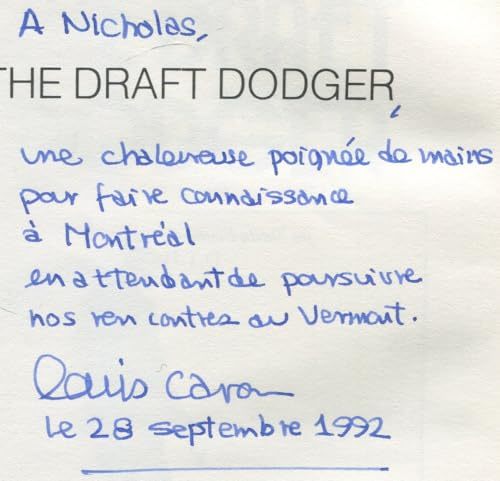 A Nicholas,
THE DRAFT DODGER,
une chaleureuse poignée de mains
pour faire connaissance
à Montréal
en attendant de poursuivre
nos rencontres au Vermont.
Louis Caron
le 28 septembre 1992